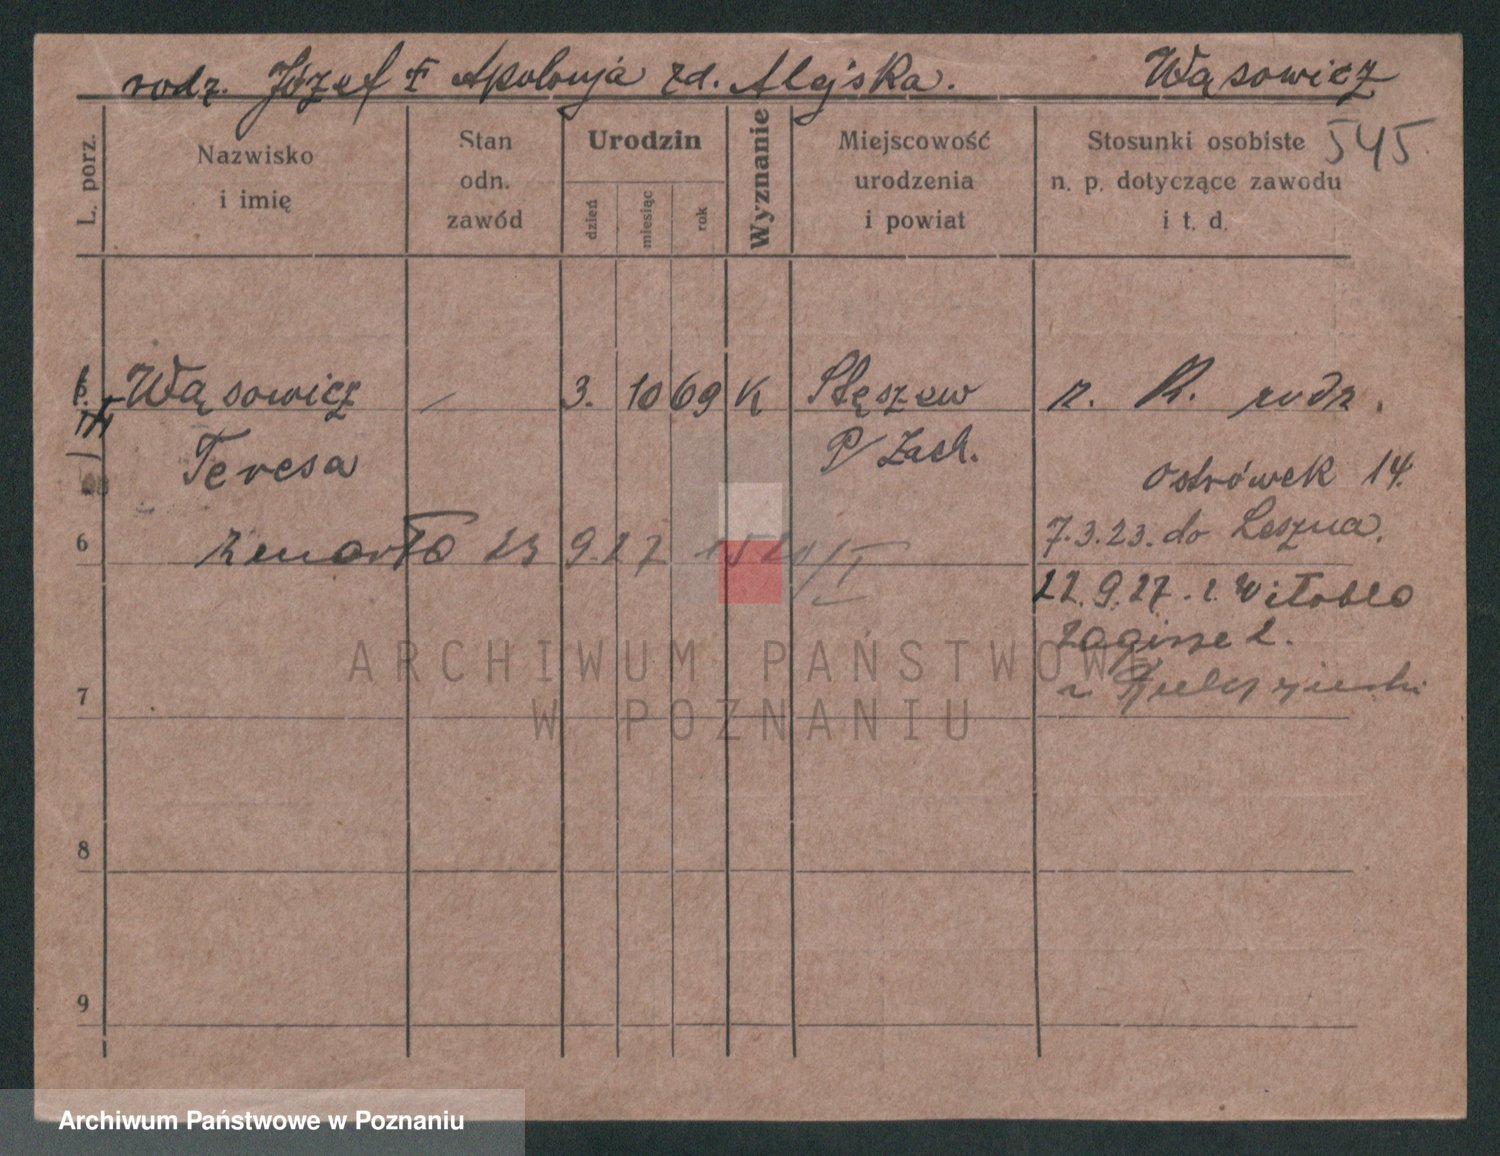 rodz. Józef i Apolonja zd. Alejska. Wąsowicz
545
L. porz.
Nazwisko
i imię
Stan
odn.
zawód
Urodzin
dzień
miesiąc
rok
Wyznanie
Miejscowość
urodzenia
i powiat
Stosunki osobiste
n. p. dotyczące zawodu
i t. d.
Wąsowicz — 3. 10 69 K Stęszew z. R. rodz.
Teresa P/Zach. Ostrówek 14.
7.3.23. do Leszna.
6 zmarła 23 9.27
22.9.27. z. Witoblo
7
8
9
ARCHIWUM PAŃSTWOWE
W POZNANIU
Archiwum Państwowe w Poznaniu